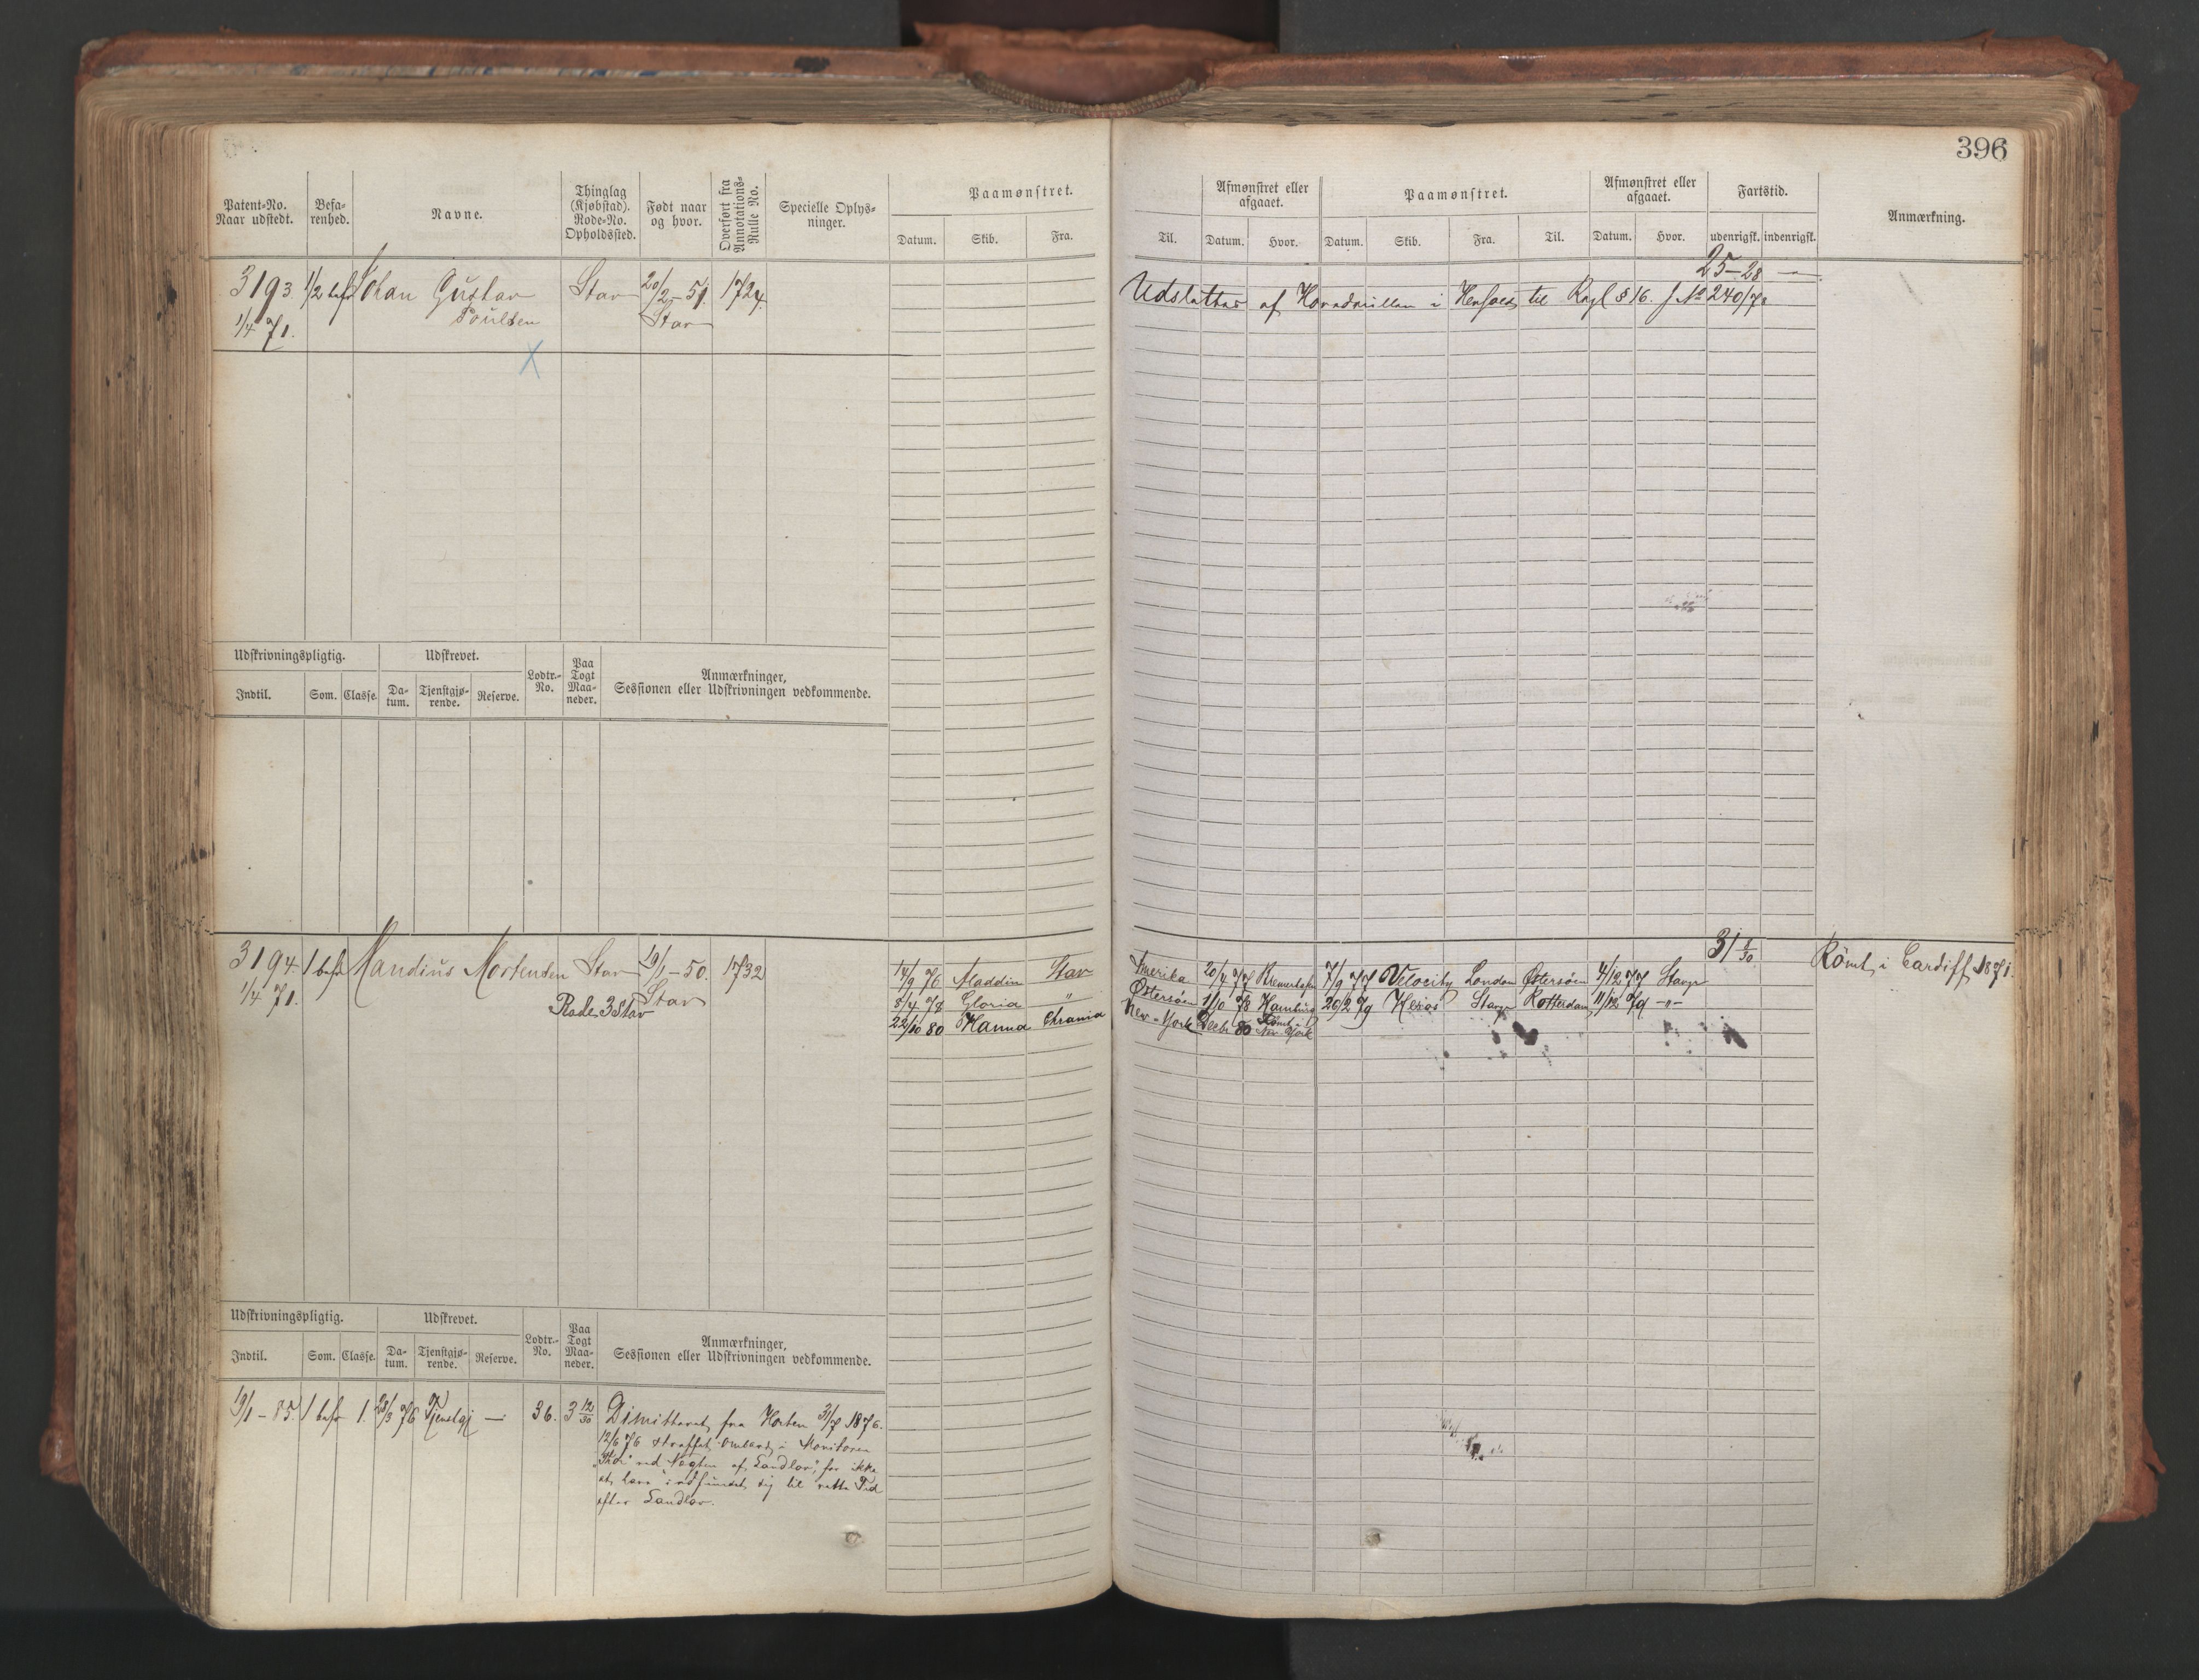 396
Patent-No. Naar udstedt.
Befa-renhed.
Navne.
Thinglag (Kjøbstad). Rode-No. Opholdssted.
Født naar og hvor.
Overført fra Annotations-Rulle No.
Specielle Oplys-ninger.
Paamønstret.
Datum. Skib. Fra.
Til.
Afmønstret eller afgaaet.
Datum. Hvor.
Paamønstret.
Datum. Skib. Fra. Til.
Afmønstret eller afgaaet.
Datum. Hvor.
Fartstid.
udenrigsk. indenrigsk.
Anmærkning.
25-28 —
3193 1/2 befr Johan Gustav Stav 20/2-51. 1724.
Poulsen Stav
1/4 71.
X
Udslettes af Hovedrullen i Henhold til Regl § 16. J No 240/72
Udskrivningspligtig. Udskrevet. Lodtr.-No. Paa Togt Maa-neder. Anmærkninger, Sessionen eller Udskrivningen vedkommende.
Indtil. Som. Classe. Da-tum. Tjenstgjø-rende. Reserve.
3194 1 befr Mandius Mortensen Stav 19/1-50. 1732
1/4 71. Rode 3 Stav Stav
31 /30
14/9 76 Aladdin Stav Amerika 20/7 77 Bremerhafen 7/9 77 Velocity London Østersøen 4/12 77 Stavgr
8/4 78 Gloria " Østersøen 1/10 78 Hamburg 26/2 79 Heros Stavgr Rotterdam 11/12 79 -"-
22/10 80 Hanna Chrania New-York Decbr 80 Rømt New-York
Rømt i Cardiff 1871.
Udskrivningspligtig. Udskrevet. Lodtr.-No. Paa Togt Maa-neder. Anmærkninger, Sessionen eller Udskrivningen vedkommende.
Indtil. Som. Classe. Da-tum. Tjenstgjø-rende. Reserve.
19/1-85. 1 befr 1. 28/3 76 Tjenstgj — 36. 3 12/30 Dimitteret fra Horten 31/7 1876.
12/6 76 straffet ombord i Monitoren
"Thor" med Nægten af Landlov, for ikke
at have indfundet sig til rette Tid
efter Landlov.